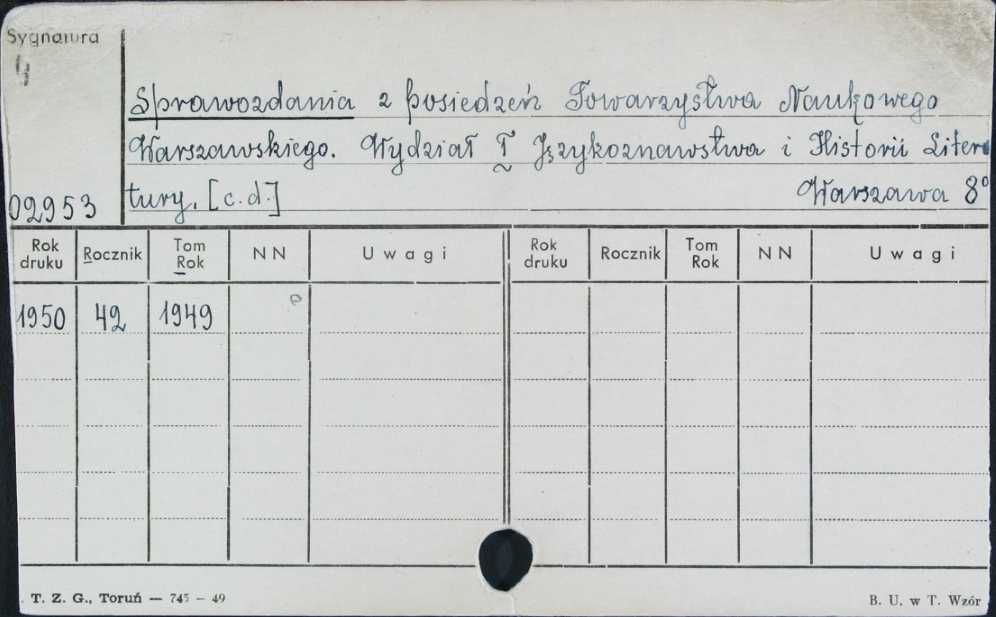 Sygnatura
Sprawozdania z posiedzeń Towarzystwa Naukowego
Warszawskiego. Wydział I Językoznawstwa i Historii Litera
tury. [c.d.] Warszawa 8°
02953
Rok druku Rocznik Tom Rok NN Uwagi Rok druku Rocznik Tom Rok NN Uwagi
1950 42 1949
T. Z. G., Toruń — 745 — 49 B. U. w T. Wzór